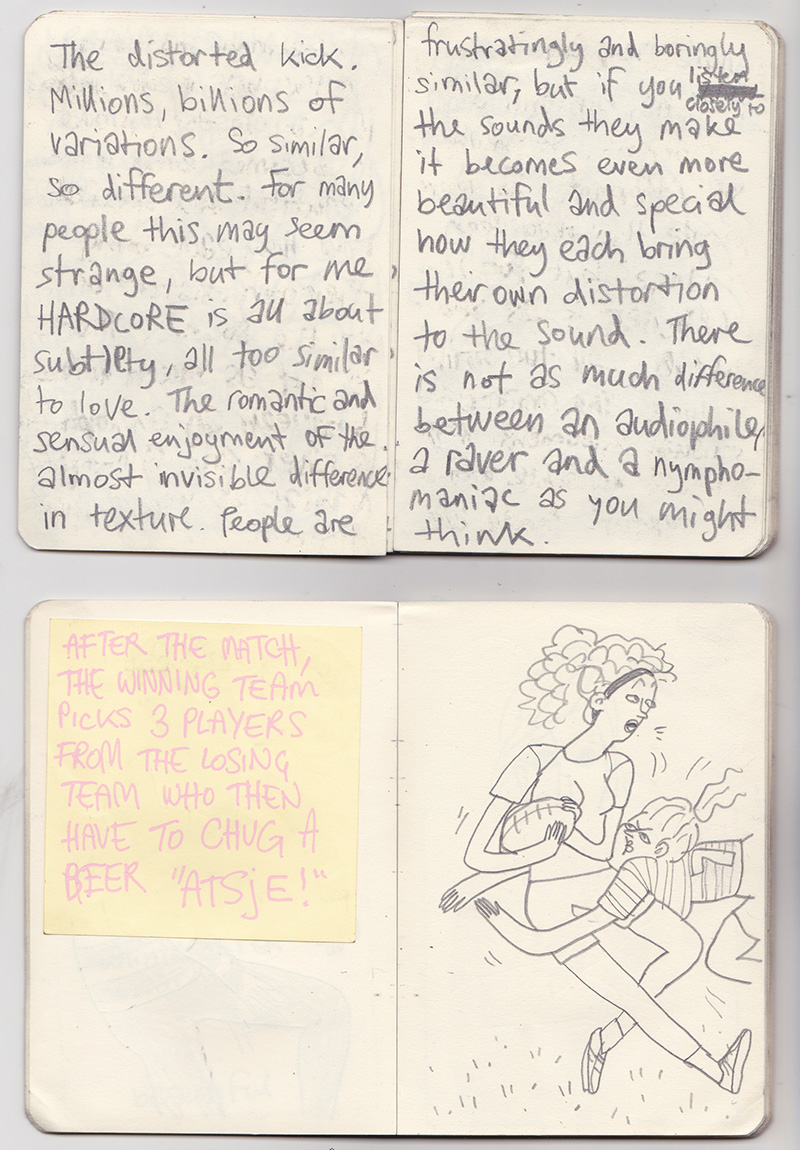 The distorted kick.
Millions, billions of
variations. So similar,
so different. For many
people this may seem
strange, but for me
HARDCORE is all about
subtlety, all too similar
to love. The romantic and
sensual enjoyment of the
almost invisible difference
in texture. People are
frustratingly and boringly
similar, but if you listen
closely to
the sounds they make
it becomes even more
beautiful and special
how they each bring
their own distortion
to the sound. There
is not as much difference
between an audiophile,
a raver and a nympho-
maniac as you might
think.
AFTER THE MATCH,
THE WINNING TEAM
PICKS 3 PLAYERS
FROM THE LOSING
TEAM WHO THEN
HAVE TO CHUG A
BEER "ATSjE!"